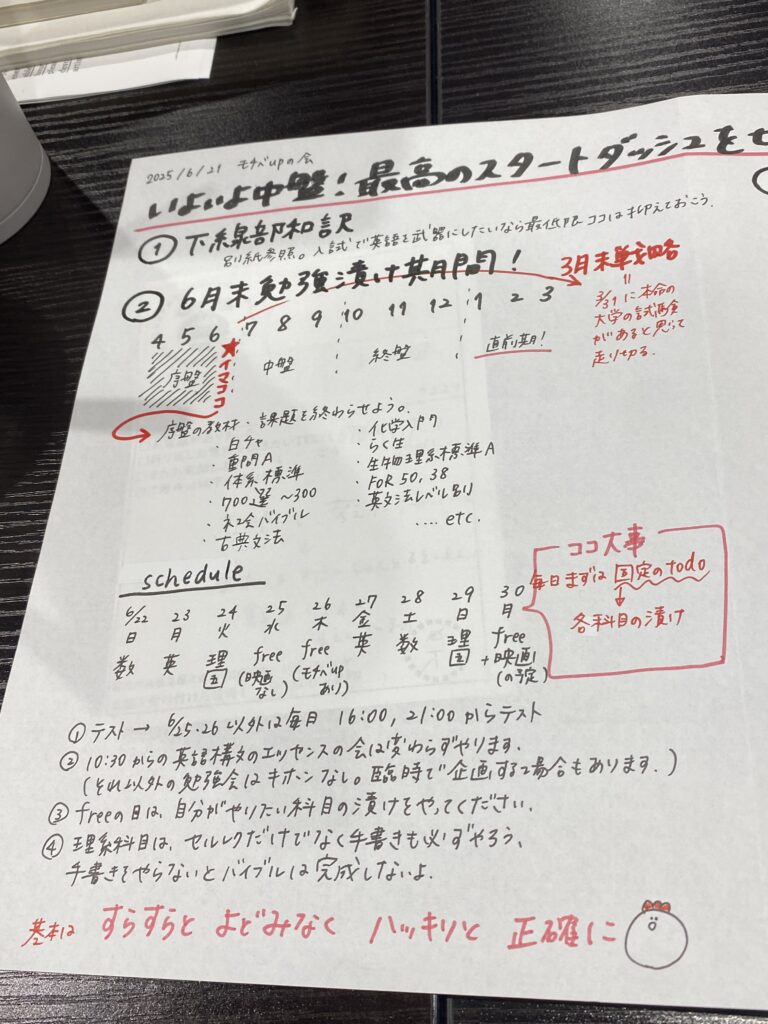 2025/6/21 モチベupの会
いよいよ中盤！最高のスタートダッシュをせ
① 下線部和訳
別紙参照。入試で英語を武器にしたいなら最低限ココは抑えておこう.
② 6月末勉強漬け期間！
3月末単戦略
=
3/31に本命の
大学の試験
があると思って
走り切る.
4 5 6 7 8 9 10 11 12 1 2 3
序盤
★イマココ
中盤
終盤
直前期！
序盤の教材・課題を終わらせよう。
・白チャ
・重問A
・体系標準
・700選 〜300
・ネ2全バイブル
・古典文法
・化学入門
・らく生
・生物理系標準A
・FOR 50, 38
・英文法レベル別
.... etc.
schedule
6/22 23 24 25 26 27 28 29 30
日 月 火 水 木 金 土 日 月
数 英 理国 free (映画なし) free (モチベupあり) 英 数 理国 free +映画 (の予定)
ココ大事
毎日まずは固定のtodo
↓
各科目の漬け
① テスト → 6/25.26以外は毎日 16:00, 21:00からテスト
② 10:30からの英語構文のエッセンスの会は変わらずやります.
(それ以外の勉強会はキホンなし。臨時で企画する場合もあります.)
③ freeの日は、自分がやりたい科目の漬けをやってください.
④ 理系科目は、セルレクだけでなく手書きも必ずやろう、
手書きをやらないとバイブルは完成しないよ.
基本は すらすらと よどみなく ハッキリと 正確に